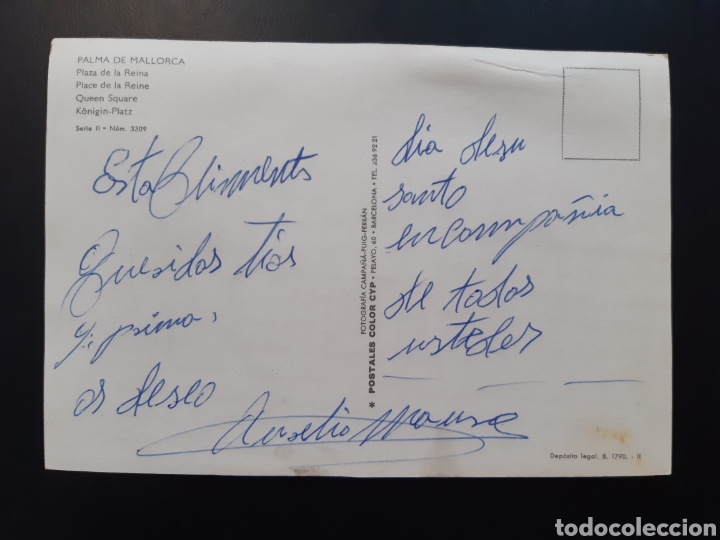 PALMA DE MALLORCA
Plaza de la Reina
Place de la Reine
Queen Square
Königin-Platz
Serie II - Núm. 3309
Queridos tíos
y primo,
os deseo
FOTOGRAFÍA CAMPAÑÁ-PUIG-FERRÁN
* POSTALES COLOR CYP • PELAYO, 60 • BARCELONA • TEL. 236 92 21
dia de su
santo
en compañia
de todos
ustedes
Aurelio
Depósito legal. B. 1790. - II
todocoleccion